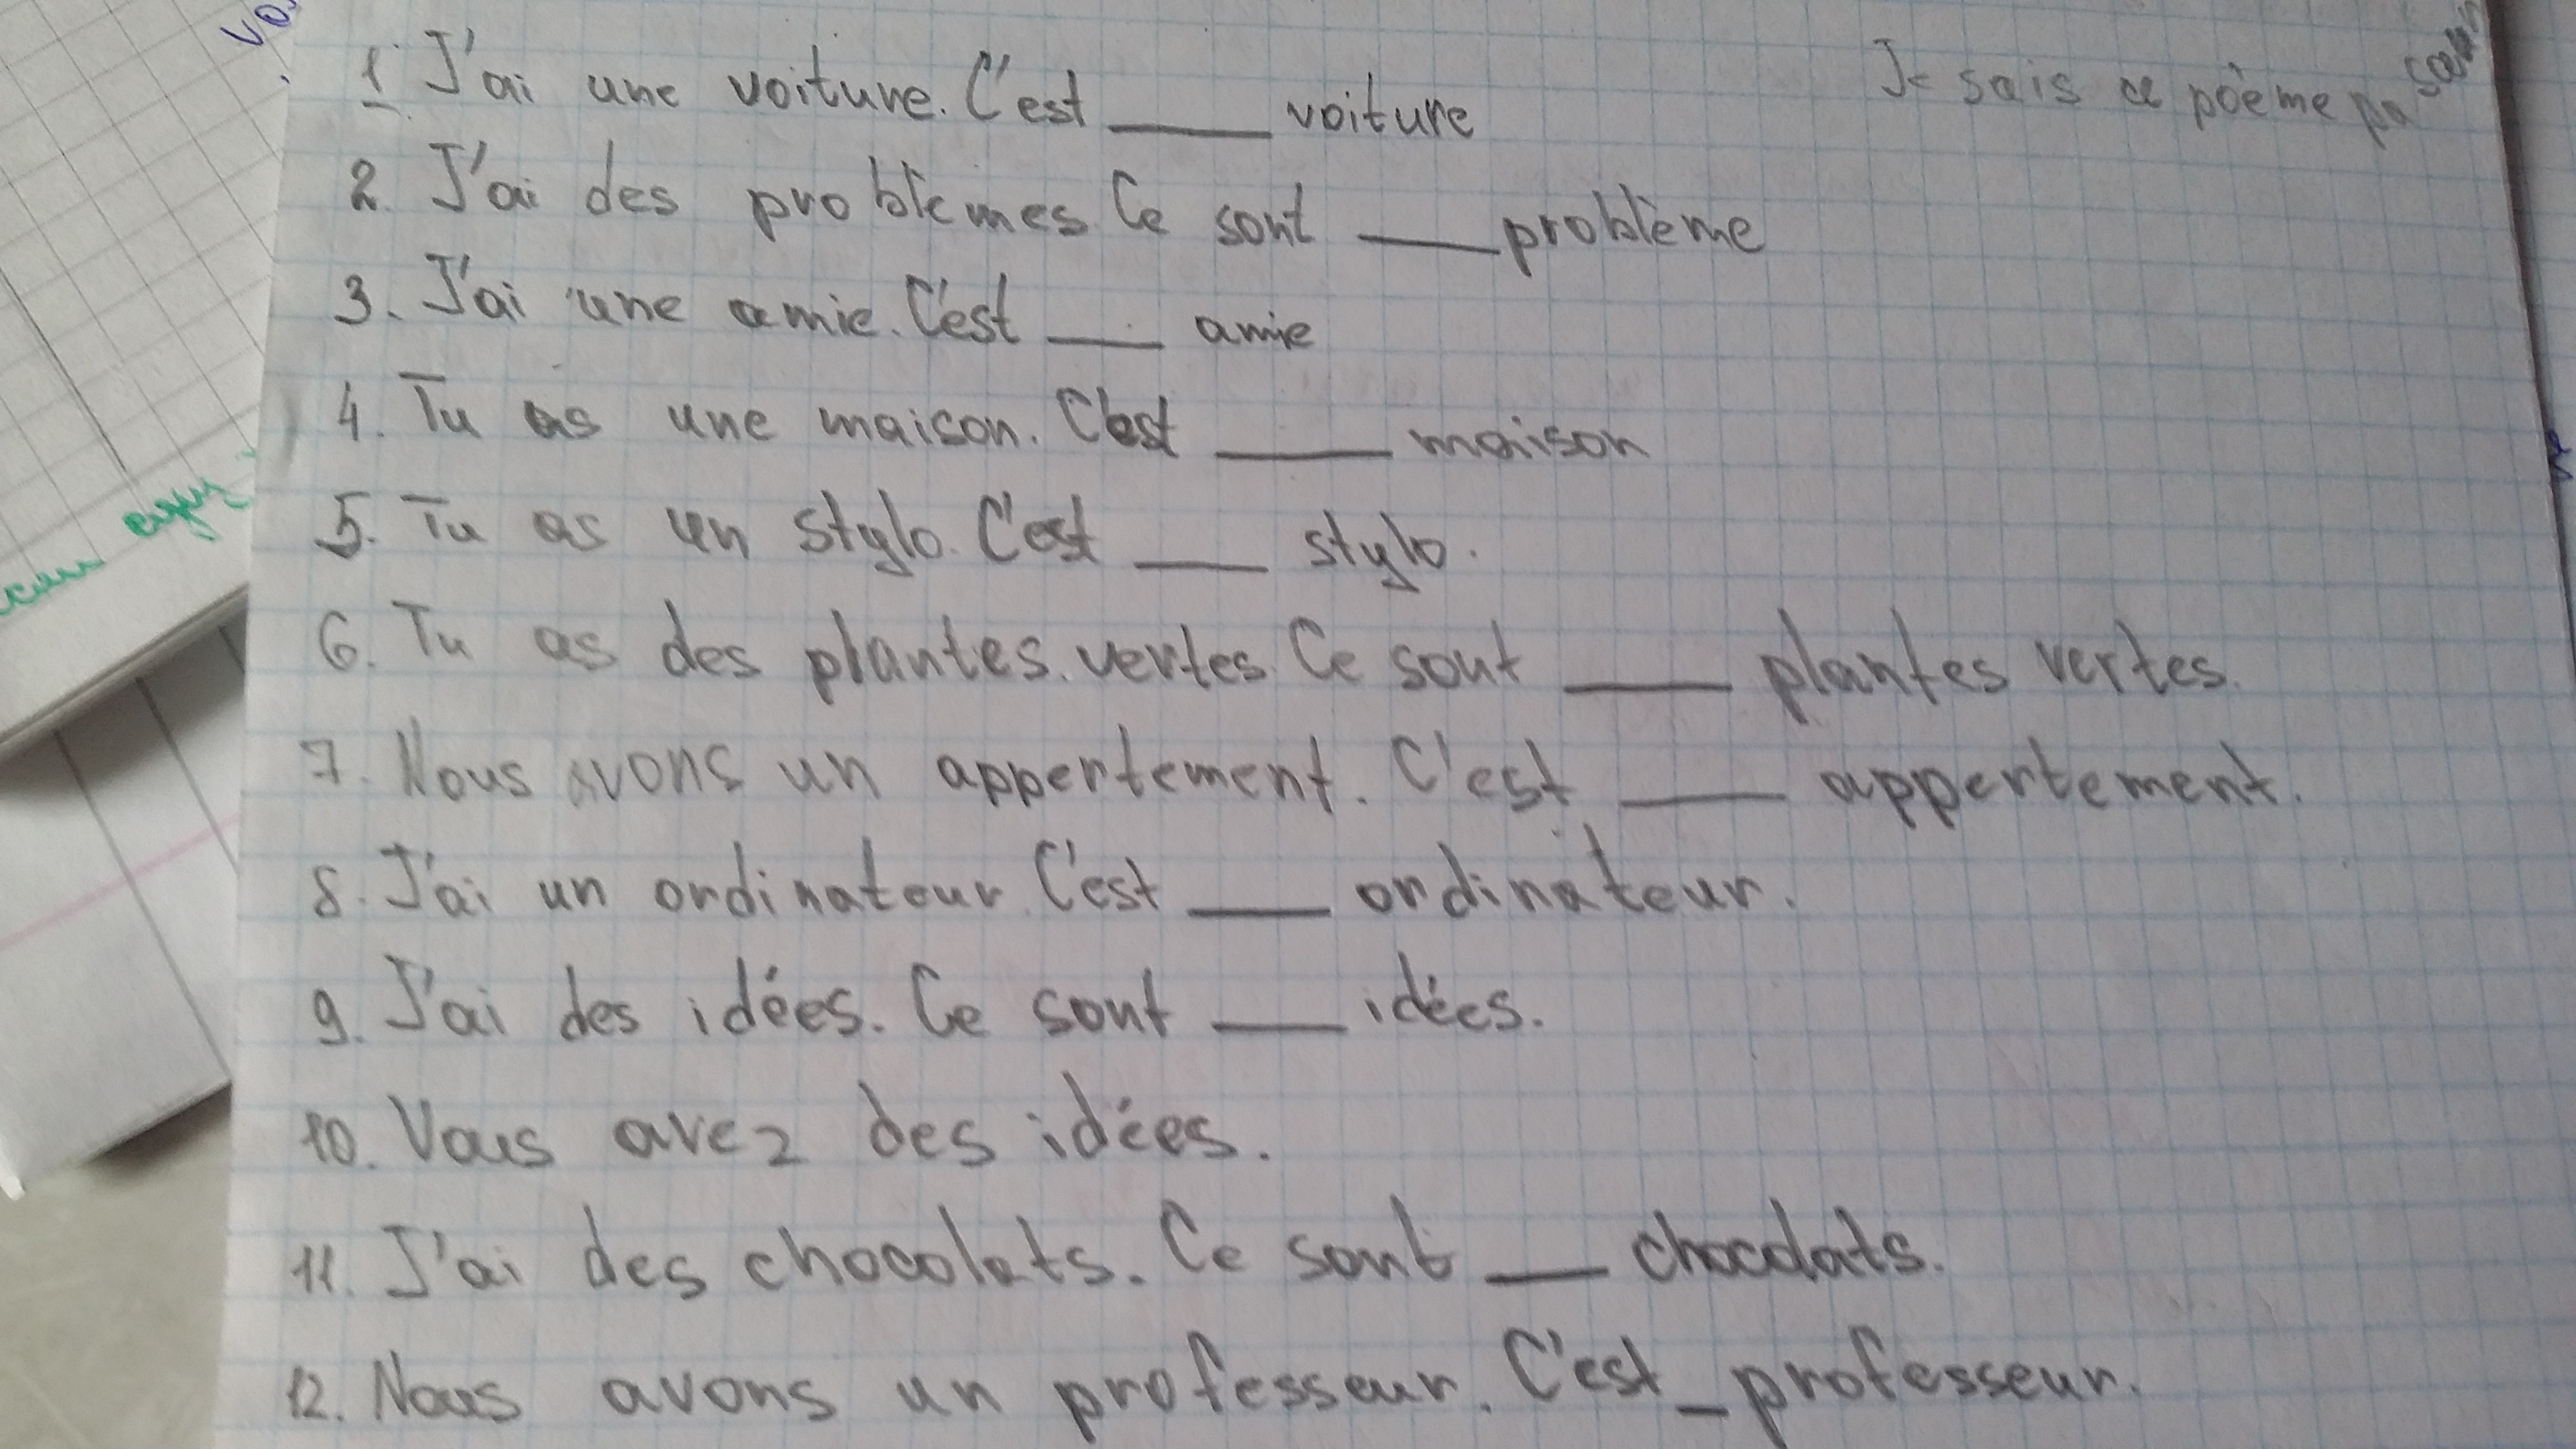 1. J'ai une voiture. C'est ____ voiture
Je sais ce poème
2. J'ai des problèmes. Ce sont ____ problème
3. J'ai une amie. C'est ____ amie
4. Tu as une maison. C'est ____ maison
5. Tu as un stylo. C'est ____ stylo.
6. Tu as des plantes vertes. Ce sont ____ plantes vertes.
7. Nous avons un appertement. C'est ____ appertement.
8. J'ai un ordinateur. C'est ____ ordinateur.
9. J'ai des idées. Ce sont ____ idées.
10. Vous avez des idées.
11. J'ai des chocolats. Ce sont ____ chocolats.
12. Nous avons un professeur. C'est _ professeur.